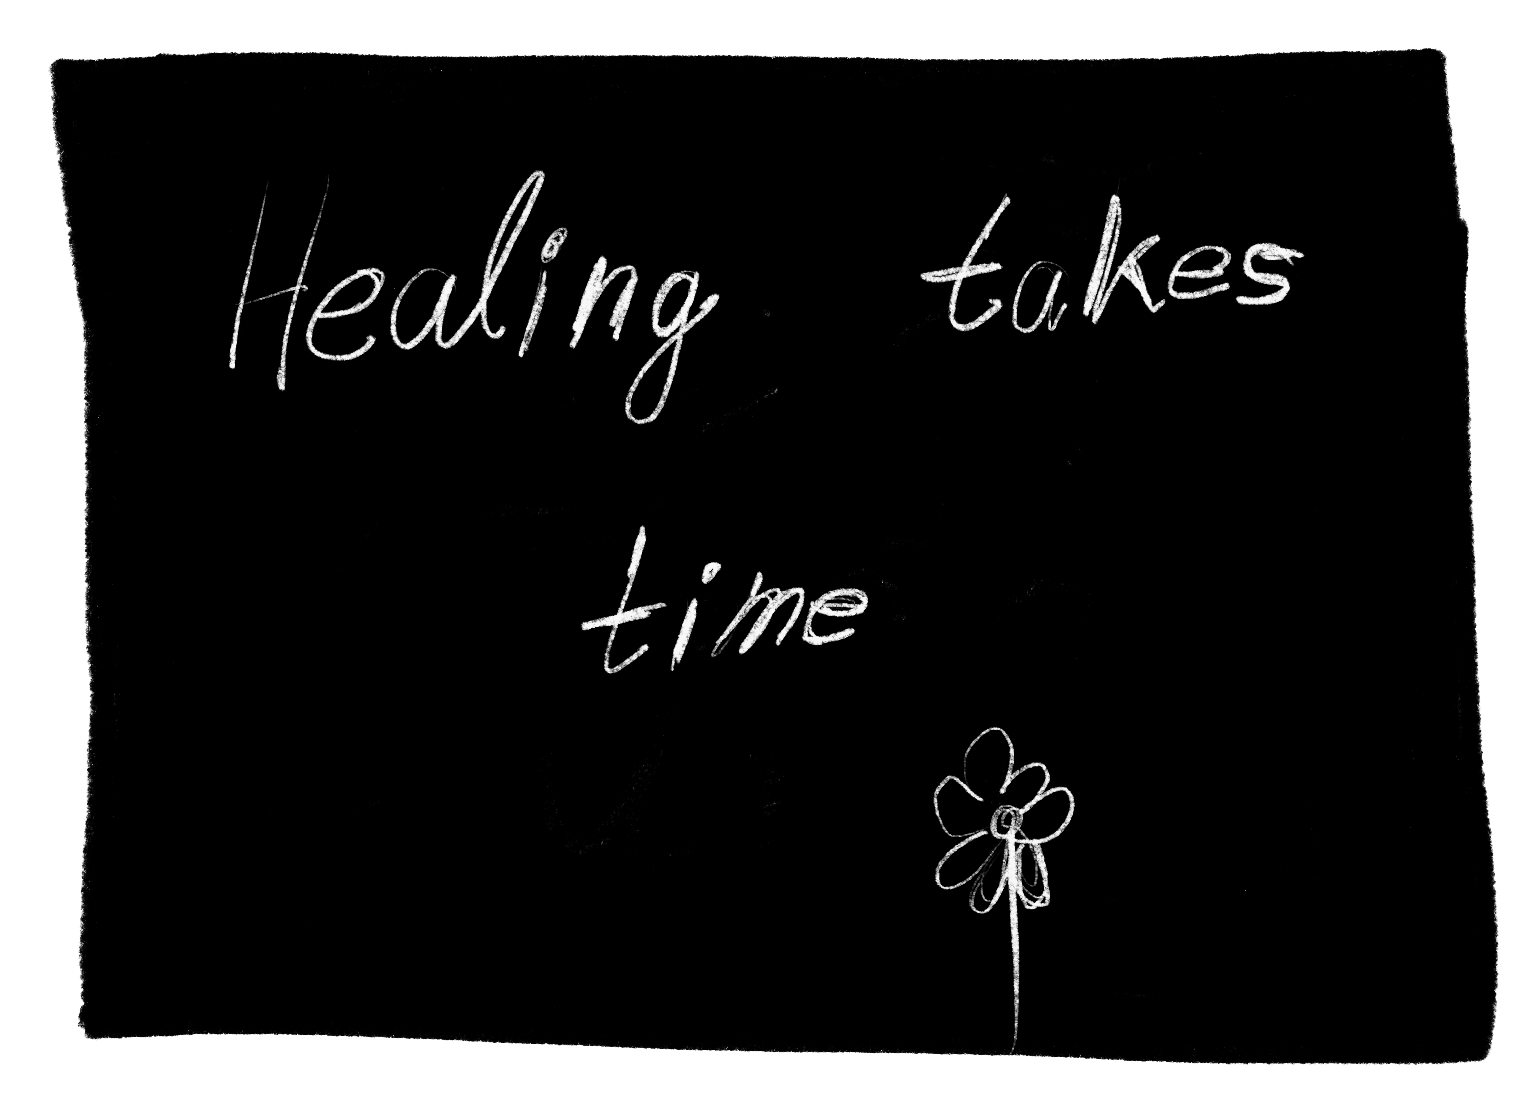 Healing takes
time